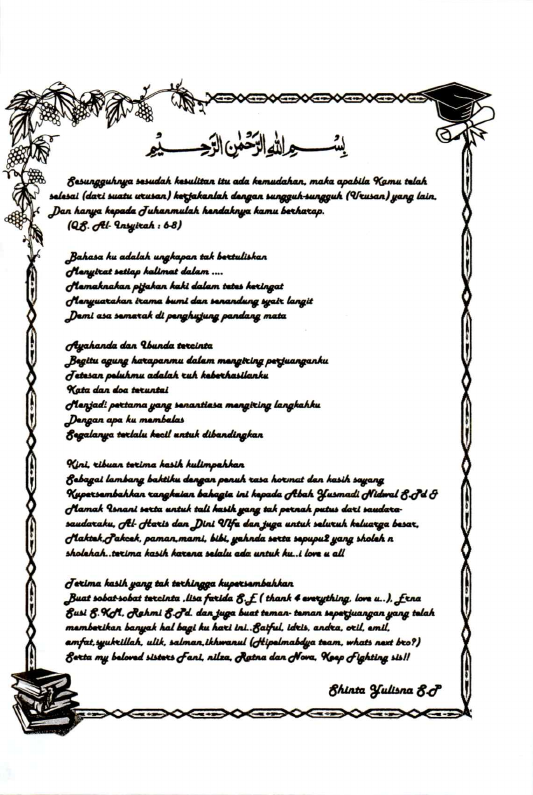 بِسْــــمِ اللهِ الرَّحْمٰنِ الرَّحِـــيْمِ
Sesungguhnya sesudah kesulitan itu ada kemudahan, maka apabila Kamu telah
selesai (dari suatu urusan) kerjakanlah dengan sungguh-sungguh (Urusan) yang lain,
Dan hanya kepada Tuhanmulah hendaknya kamu berharap.
(QS. Al- Insyirah : 6-8)
Bahasa ku adalah ungkapan tak bertuliskan
Menyirat setiap kalimat dalam ....
Memaknakan pijakan kaki dalam tetes keringat
Menyuarakan irama bumi dan senandung syair langit
Demi asa semarak di penghujung pandang mata
Ayahanda dan Ibunda tercinta
Begitu agung harapanmu dalam mengiring perjuanganku
Tetesan peluhmu adalah ruh keberhasilanku
Kata dan doa teruntai
Menjadi pertama yang senantiasa mengiring langkahku
Dengan apa ku membalas
Segalanya terlalu kecil untuk dibandingkan
Kini, ribuan terima kasih kulimpahkan
Sebagai lambang baktiku dengan penuh rasa hormat dan kasih sayang
Kupersembahkan rangkaian bahagia ini kepada Abah Yusmadi Nidwal S.Pd &
Mamak Isnani serta untuk tali kasih yang tak pernah putus dari saudara-
saudaraku, Al- Haris dan Dini Ulfa dan juga untuk seluruh keluarga besar,
Maktek,Pakcek, paman,mami, bibi, yahnda serta sepupu2 yang sholeh n
sholehah..terima kasih karena selalu ada untuk ku..i love u all
Terima kasih yang tak terhingga kupersembahkan
Buat sobat-sobat tercinta ,lisa farida S.E ( thank 4 everything, love u..), Erna
Susi S.KM, Rahmi S.Pd. dan juga buat teman- teman seperjuangan yang telah
memberikan banyak hal bagi ku hari ini..Saiful, idris, andra, oril, emil,
emfat,syukrillah, ulik, salman,ikhwanul (Hipelmabdya team, whats next bro?)
Serta my beloved sisters Fani, nilza, Ratna dan Nova, Keep Fighting sis!!
Shinta Yulisna S.P